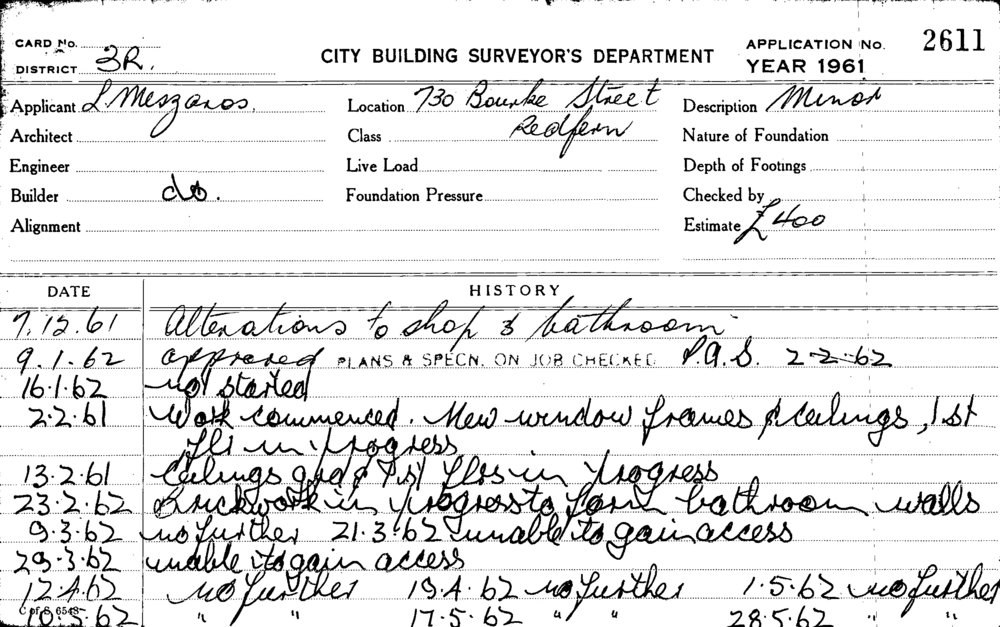 CARD No.
DISTRICT 3R.
CITY BUILDING SURVEYOR'S DEPARTMENT
APPLICATION No. 2611
YEAR 1961
Applicant L Meszaros. Location 730 Bourke Street Description Minor
Architect Class Redfern Nature of Foundation
Engineer Live Load Depth of Footings
Builder do. Foundation Pressure Checked by
Alignment Estimate £400
DATE HISTORY
7.12.61 Alterations to shop & bathroom
9.1.62 approved PLANS & SPECN. ON JOB CHECKED P.G.S. 2-2-62
16.1.62 not started
2.2.61 Work commenced. New window frames & ceilings, 1st
flr in progress
13.2.61 Ceilings grd & 1st flrs in progress
23.2.62 Brickwork in progress to form bathroom walls
9.3.62 no further 21.3.62 unable to gain access
29.3.62 unable to gain access
12.4.62 no further 19.4.62 no further 1.5.62 no further
C of S 6548
10.5.62 " " 17.5.62 " " 28.5.62 " "